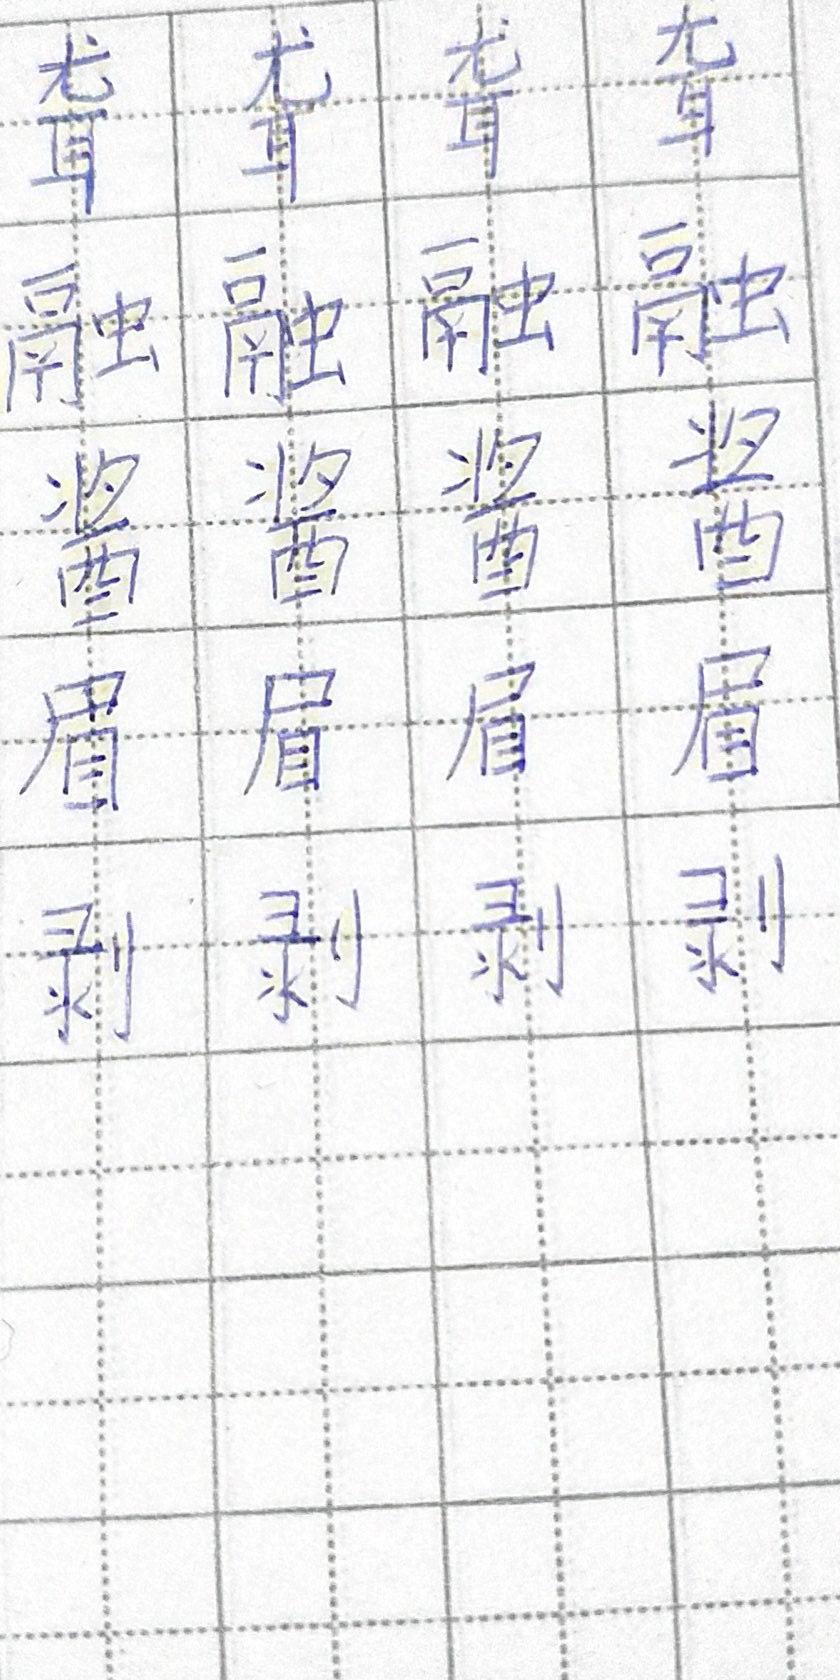 聋 聋 聋 聋
融 融 融 融
酱 酱 酱 酱
眉 眉 眉 眉
剥 剥 剥 剥